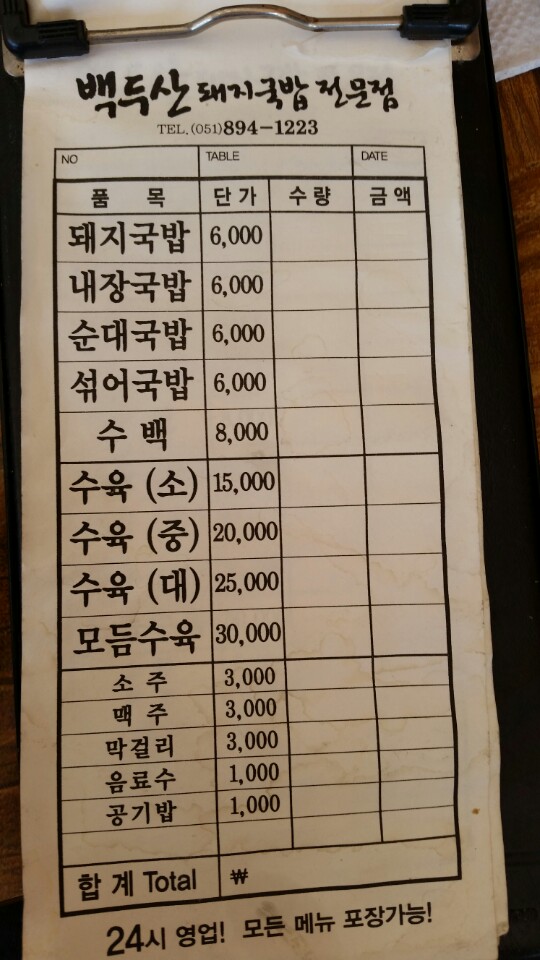 백두산 돼지국밥 전문점
TEL.(051)894-1223
NO TABLE DATE
품 목 단 가 수 량 금 액
돼지국밥 6,000
내장국밥 6,000
순대국밥 6,000
섞어국밥 6,000
수 백 8,000
수육 (소) 15,000
수육 (중) 20,000
수육 (대) 25,000
모듬수육 30,000
소 주 3,000
맥 주 3,000
막걸리 3,000
음료수 1,000
공기밥 1,000
합 계 Total ₩
24시 영업! 모든 메뉴 포장가능!